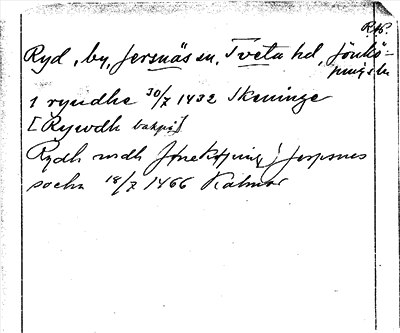 RAP.
Ryd, by, Jersnäs sn, Tveta hd, Jönkö-
pings län
i ryudhe 30/7 1432 Skeninge
[Rywdh bakpå]
Rydh widh Jönekøping i Jerpsnes
sochn 18/7 1466 Kalmar